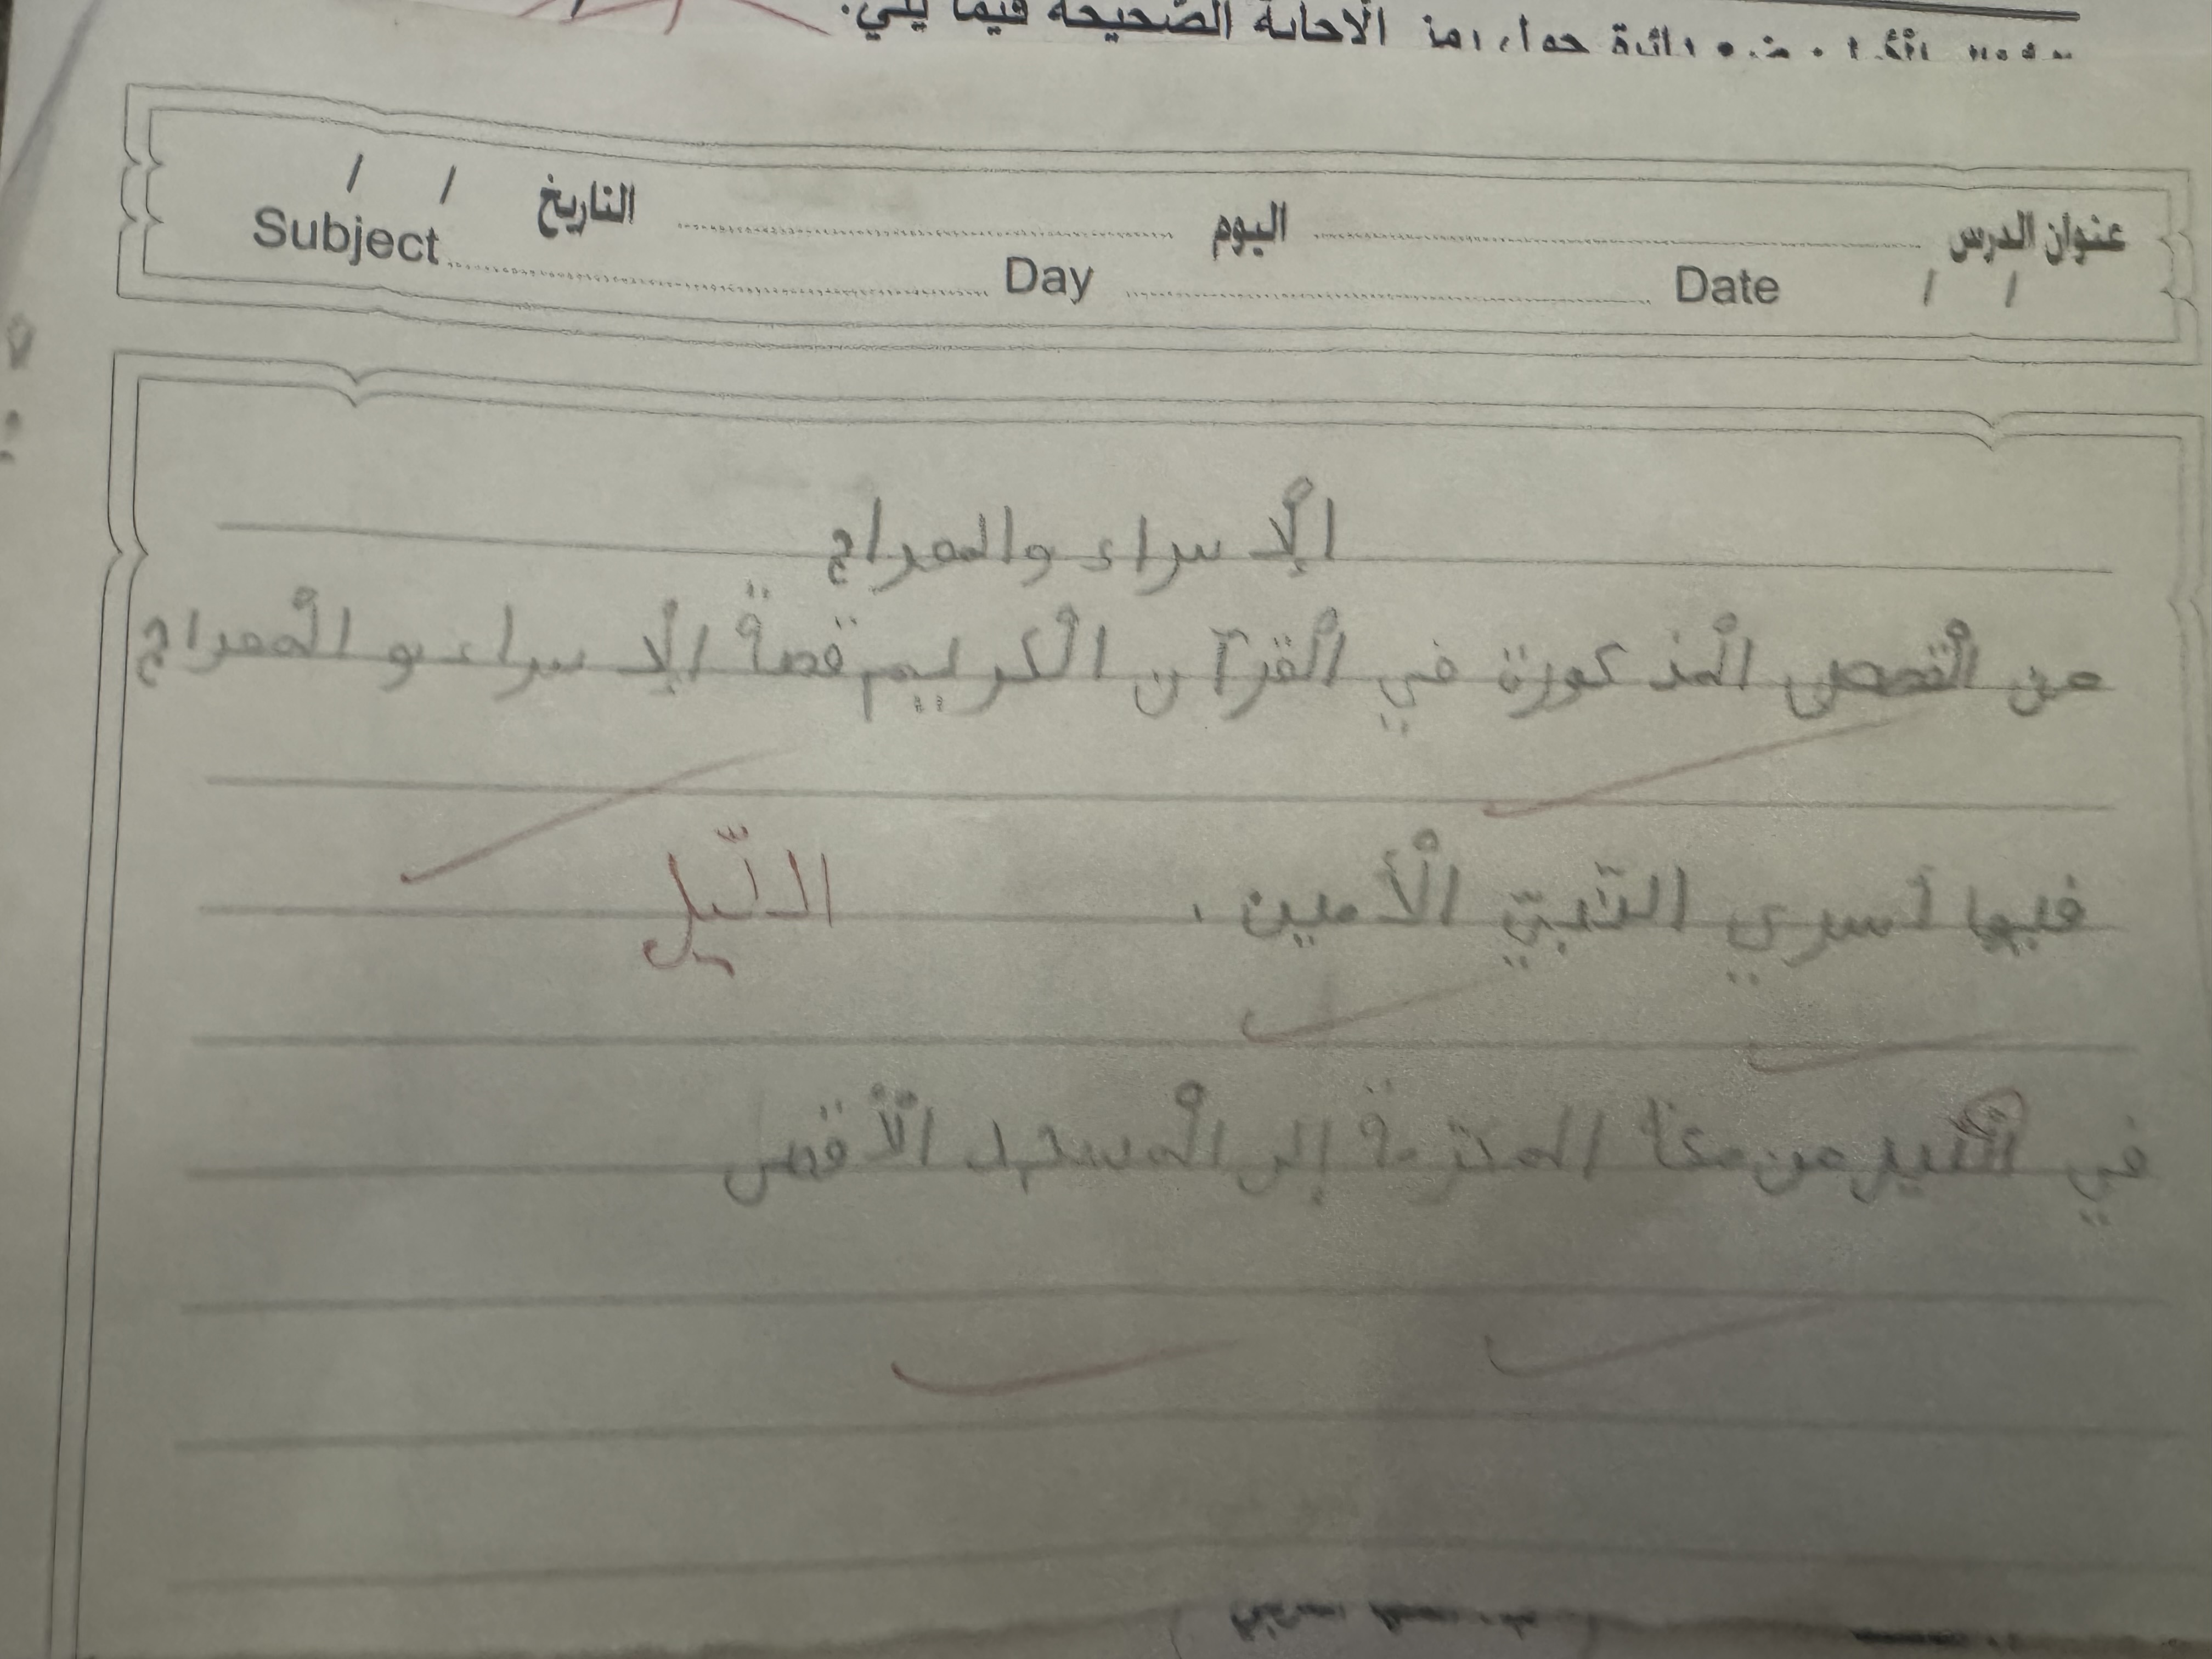 الإجابة الصّحيحة فيما يلي:
عنوان الدرس اليوم التاريخ / /
Subject Day Date / /
الْإسراء والمعراج
من القصص الْمذكورة في الْقرآن الْكريم قصة الْإسراء و الْمعراج
فيها أسري النّبيّ الْأمين . اللّيل
في من مكة المكرّمة إلى الْمسجد الْأقصى